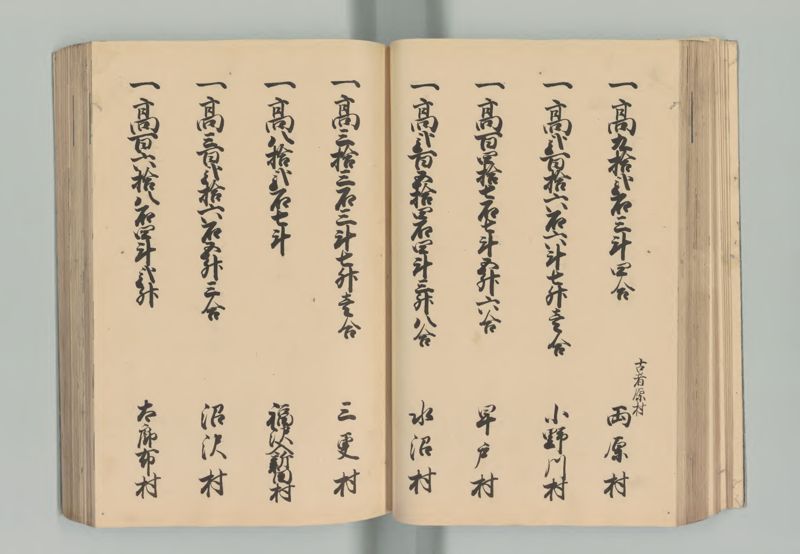 一高九拾弐石三斗四合
古者原村
両原村
一高弐百拾六石六斗七升壱合
小野川村
一高百四拾七石七斗五升六合
早戸村
一高弐百五拾四石四斗三升八合
水沼村
一高三拾三石三斗七升壱合
三更村
一高八拾弐石七斗
福沢新田村
一高三百弐拾六石五升三合
沼沢村
一高百六拾八石四斗弐升
太郎布村